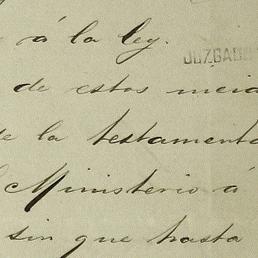 á la ley.
JUZGADO
de estos incid
de la testamento
Ministerio á
sin que hasta